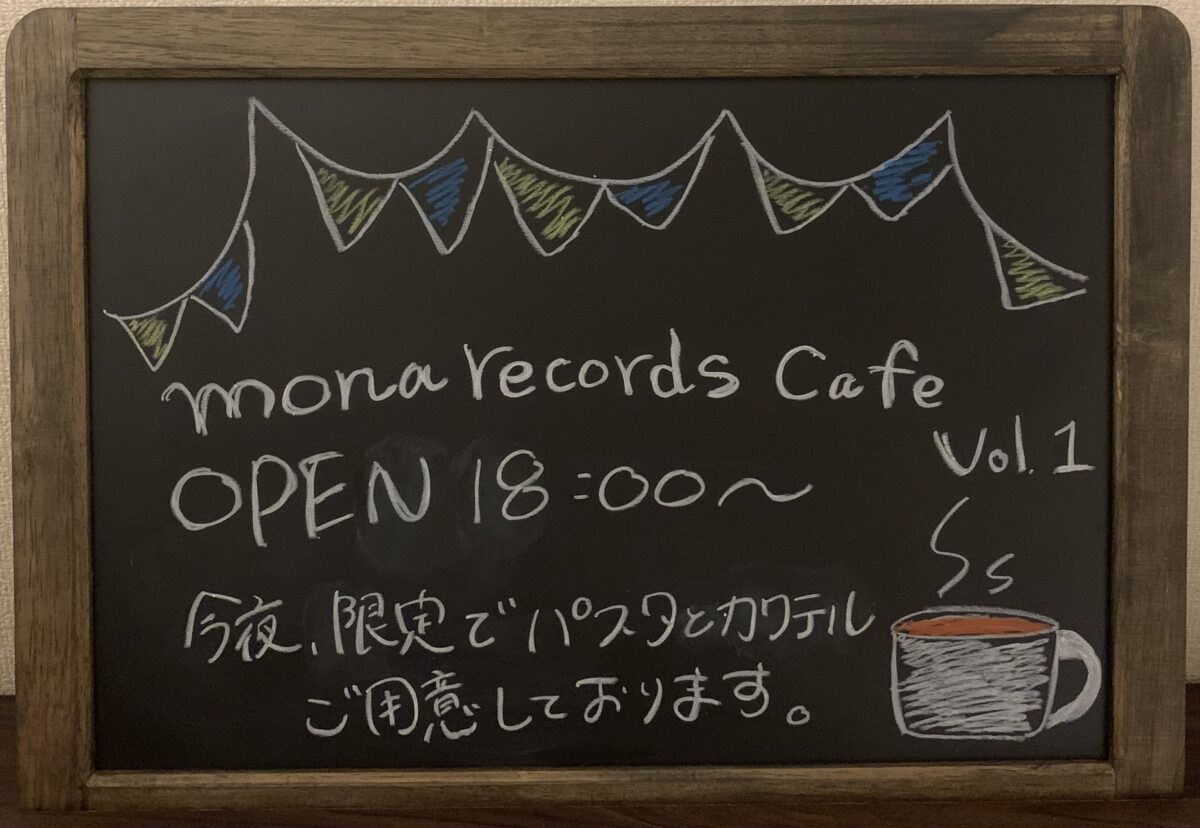 mona records Cafe
Vol.1
OPEN 18:00〜
今夜、限定でパスタとカクテル
ご用意しております。